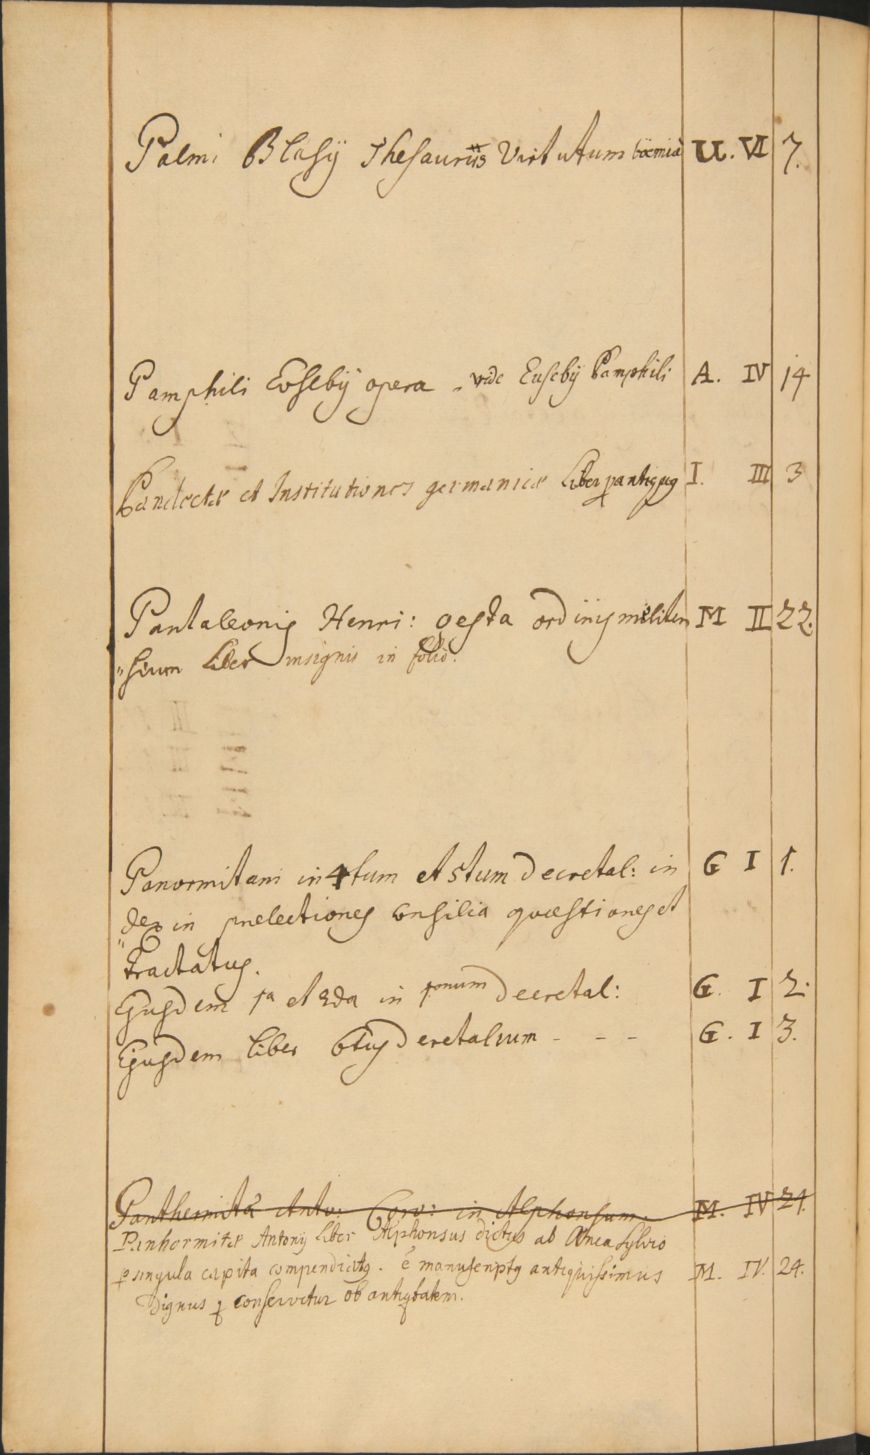 Palmi Blasÿ Thesaurus Virtutum boemiæ U. VI 7.
Pamphili Eusebÿ opera - vide Eusebÿ Pamphili A. IV 14
Pandectæ et Institutiones germanicæ Liber perantiquus I. III 3
Pantaleonis Henri: gesta ordinis militen M II 22.
"sium Liber insignis in folio.
Panormitani in 4tum et 5tum Decretal: in G I 1.
"dex in prælectiones consilia quæstiones et
Tractatus.
Ejusdem 1a et 2da in 1mum Decretal: G. I 2.
Ejusdem liber 6tus Decretalium - - - G. I 3.
Panthermitæ Anto: in Alphonsum. M. IV 24
Panhormitæ Antonÿ liber Alphonsus dictus ab Ænea Sylvio
per singula capita compendiatus. é manuscriptus antiquissimus M. IV. 24.
Dignus q conservetur ob antiquitatem.